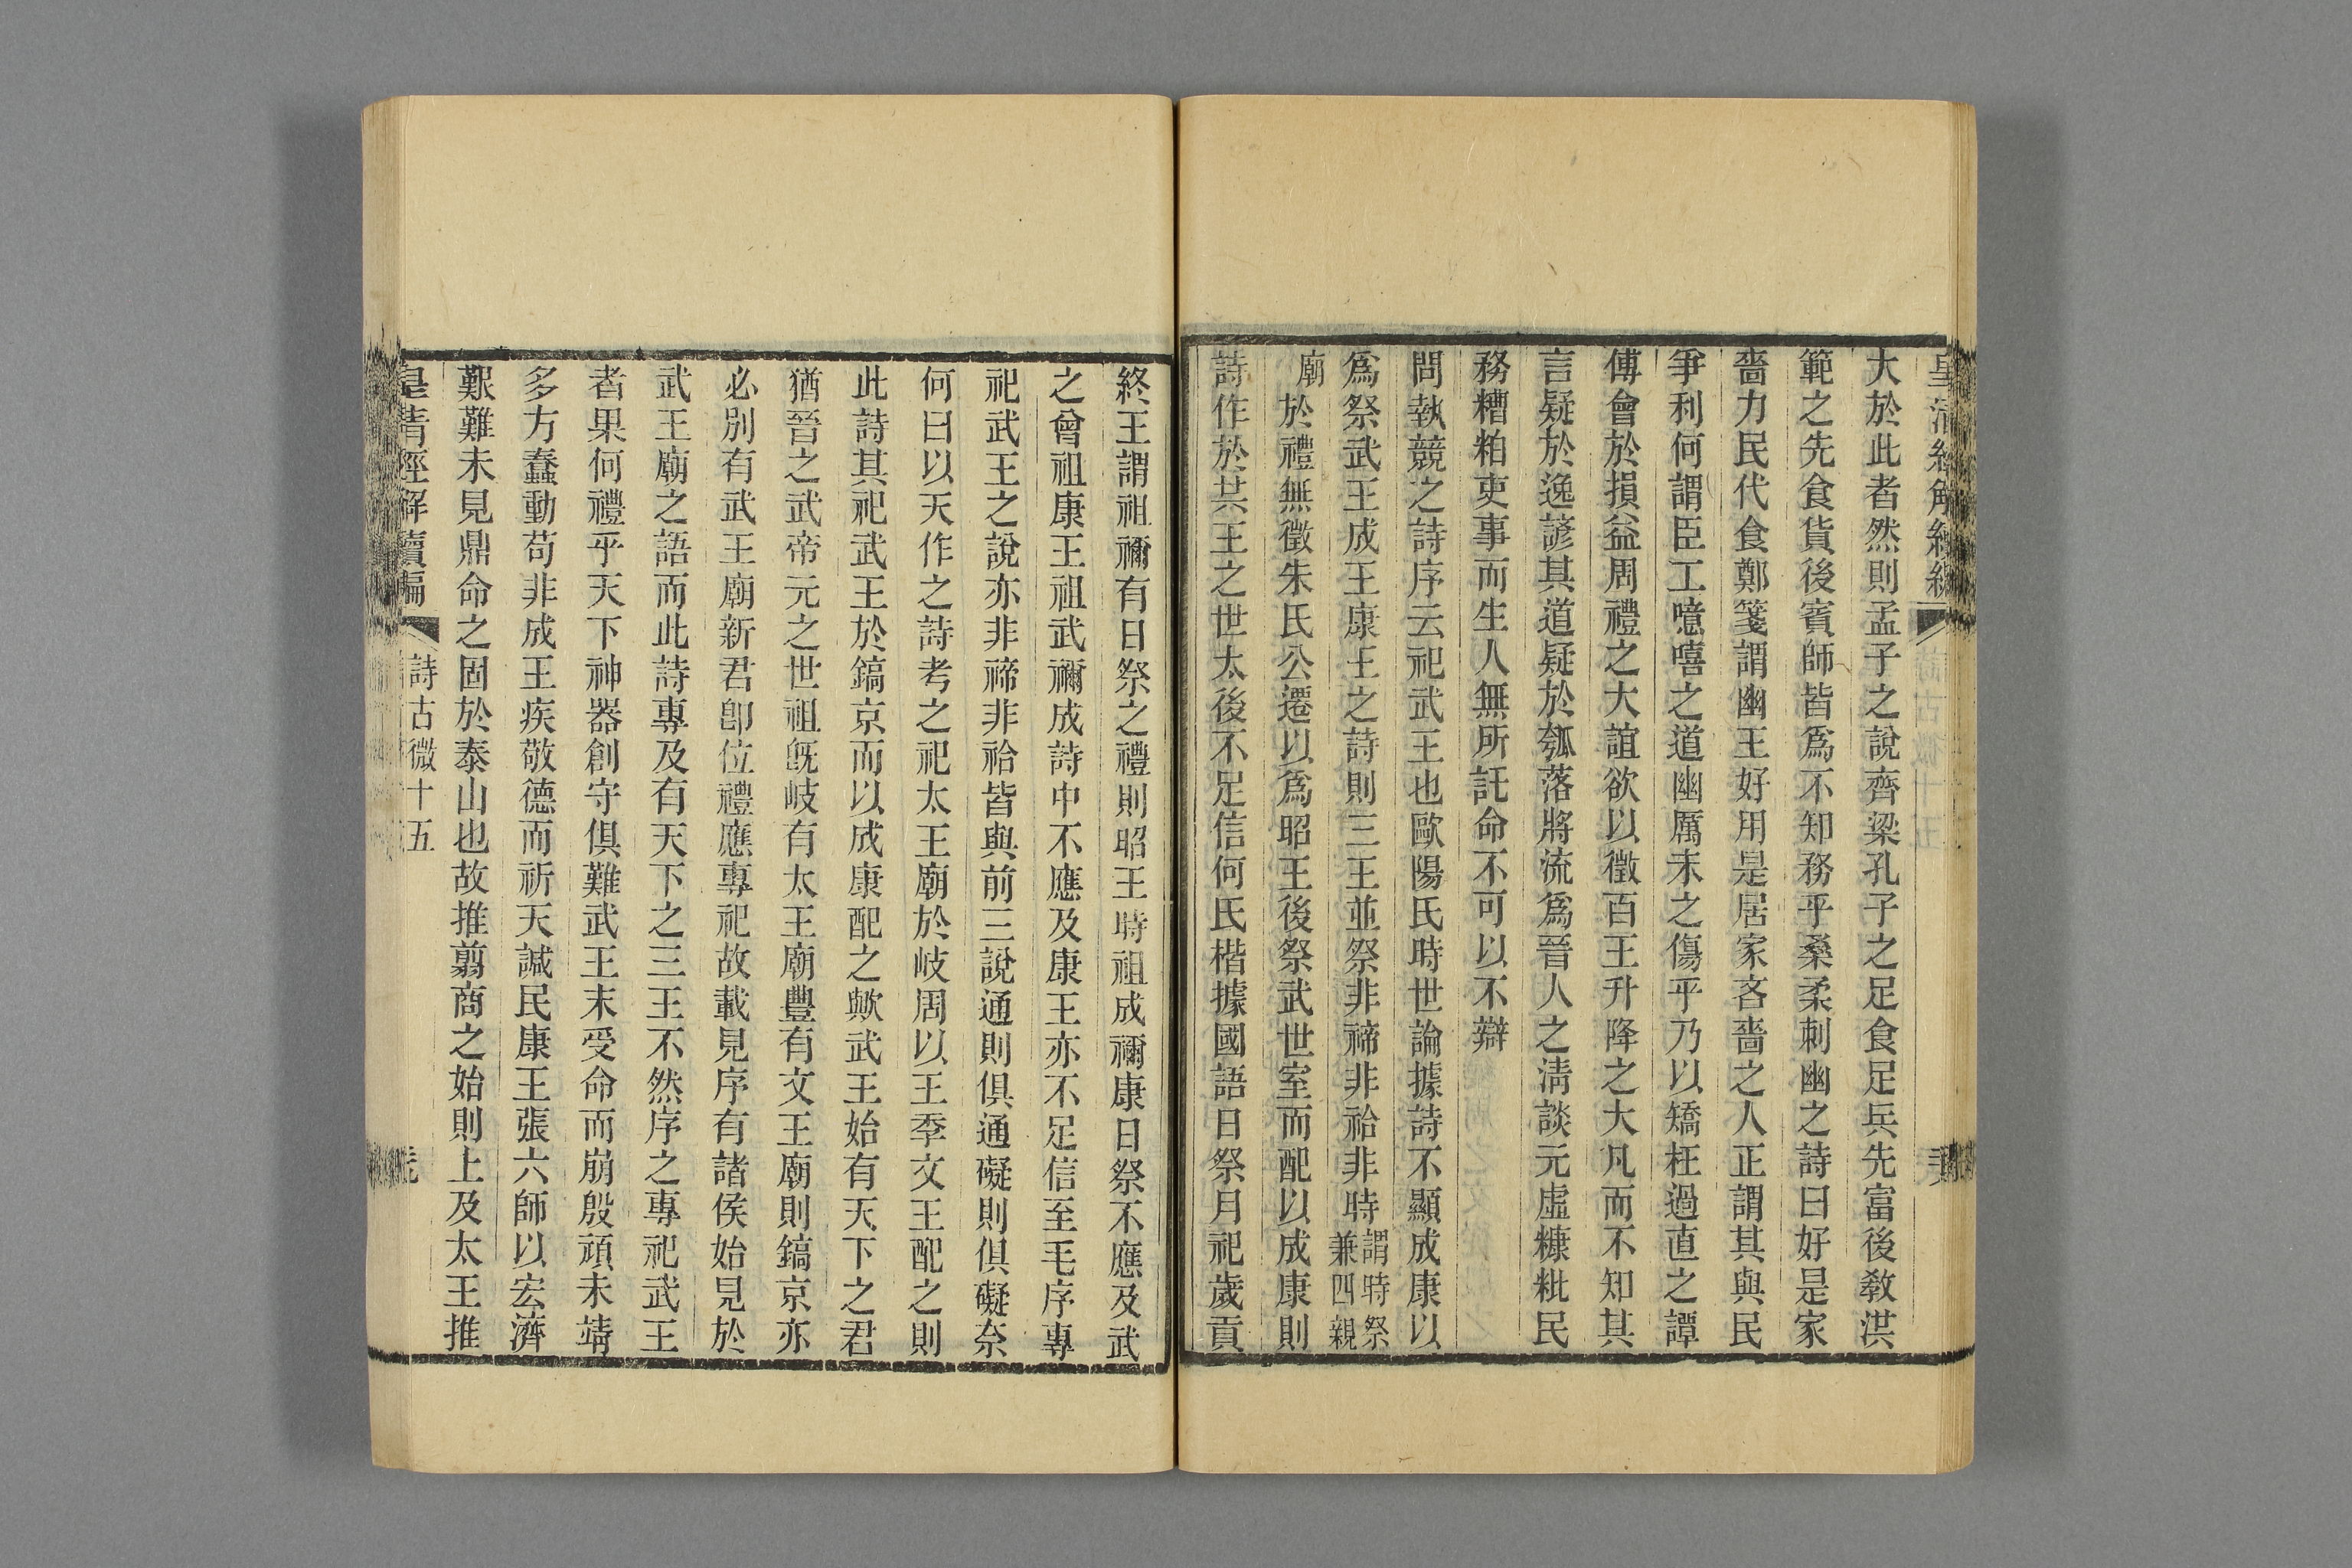 大於此者然則孟子之說齊梁孔子之足食足兵先富後敎洪
範之先食貨後賓師皆爲不知務乎桑柔刺幽之詩曰好是家
嗇力民代食鄭箋謂幽王好用是居家吝嗇之人正謂其與民
爭利何謂臣工噫嘻之道幽厲末之傷乎乃以矯枉過直之譚
傅會於損益周禮之大誼欲以徵百王升降之大凡而不知其
言疑於逸諺其道疑於瓠落將流爲晉人之淸談元虛糠粃民
務糟粕吏事而生人無所託命不可以不辯
問執競之詩序云祀武王也歐陽氏時世論據詩不顯成康以
爲祭武王成王康王之詩則三王並祭非禘非祫非時謂時祭兼四親
廟於禮無徵朱氏公遷以爲昭王後祭武世室而配以成康則
詩作於共王之世太後不足信何氏楷據國語日祭月祀歲貢
終王謂祖禰有日祭之禮則昭王時祖成禰康日祭不應及武
之曾祖康王祖武禰成詩中不應及康王亦不足信至毛序專
祀武王之說亦非禘非祫皆與前三說通則俱通礙則俱礙奈
何曰以天作之詩考之祀太王廟於岐周以王季文王配之則
此詩其祀武王於鎬京而以成康配之歟武王始有天下之君
猶晉之武帝元之世祖旣岐有太王廟豐有文王廟則鎬京亦
必別有武王廟新君卽位禮應專祀故載見序有諸侯始見於
武王廟之語而此詩專及有天下之三王不然序之專祀武王
者果何禮乎天下神器創守俱難武王末受命而崩殷頑未靖
多方蠢動苟非成王疾敬德而祈天諴民康王張六師以宏濟
艱難未見鼎命之固於泰山也故推翦商之始則上及太王推
皇淸經解續編
詩古微十五